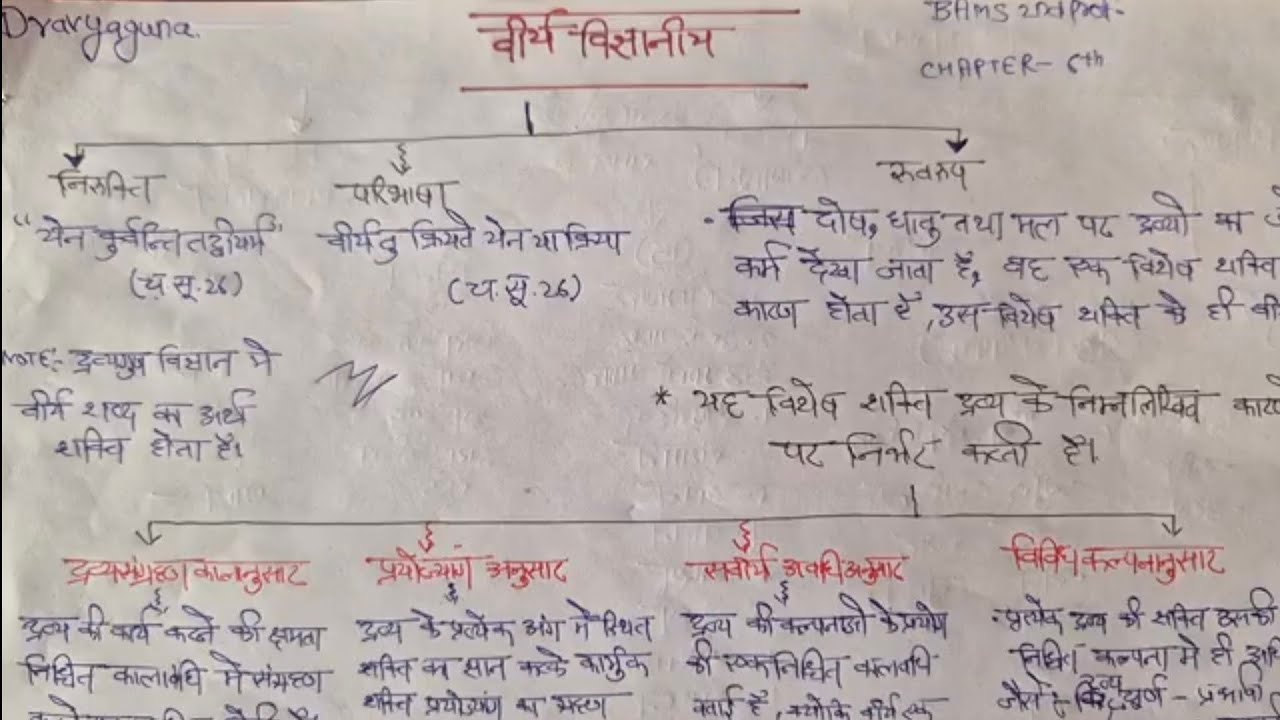 Dravyaguna.
वीर्य विज्ञानीय
BAMS 2nd Prof-
CHAPTER- 6th
निरुक्ति
"येन कुर्वन्ति तद्वीर्यम"
(च.सू.26)
परिभाषा
वीर्यतु क्रियते येन या क्रिया
(च.सू.26)
स्वरूप
• जिस दोष, धातु तथा मल पर द्रव्यो का
कर्म देखा जाता है, वह एक विशेष शक्ति
कारण होता है, उस विशेष शक्ति को ही
NOTE:- द्रव्यगुण विज्ञान मे
वीर्य शब्द का अर्थ
शक्ति होता है।
* यह विशेष शक्ति द्रव्य के निम्नलिखित
पर निर्भर करती है।
द्रव्यसंग्रहण कालानुसार
द्रव्य की कार्य करने की क्षमता
निश्चित कालावधि मे संग्रहण
प्रयोज्यांग अनुसार
द्रव्य के प्रत्येक अंग मे स्थित
शक्ति का ज्ञान करके कार्मुक
शक्ति प्रयोज्यांग का ग्रहण
सवीर्य अवधि अनुसार
द्रव्य की कल्पनाओ के प्रयोग
की एक निश्चित कालावधि
है, क्योकि वीर्य एक
विविध कल्पनानुसार
• प्रत्येक द्रव्य की शक्ति उसकी
निश्चित कल्पना मे ही
जैसे द्रव्य चूर्ण -